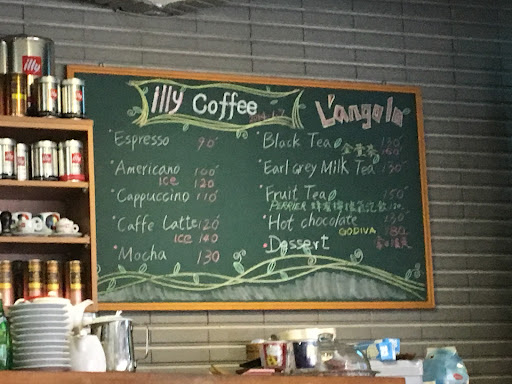 illy
illy Coffee
L'angolo
Espresso 90
Americano 100
ICE 120
Cappuccino 110
Caffe Latte 120
ICE 140
Mocha 130
Black Tea 120
Earl grey Milk Tea 130
Fruit Tea 150
PERRIER 蜂蜜檸檬氣泡飲
Hot chocolate 130
GODIVA 180
Dessert